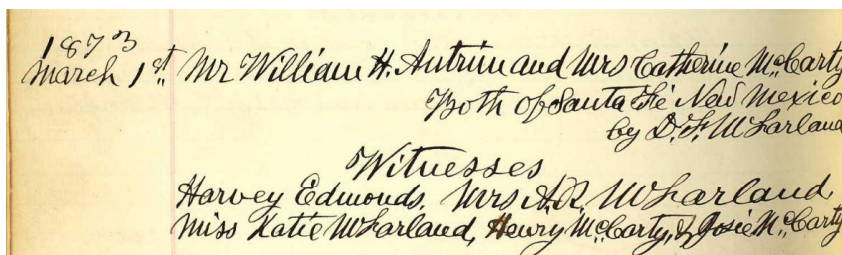 1873
March 1st. Mr William H. Antrim and Mrs Catherine McCarty
Both of Santa Fie New Mexico
by D. F. McFarland
Witnesses
Harvey Edmonds, Mrs A.R. McFarland
Miss Katie McFarland, Henry McCarty, & Josie McCarty